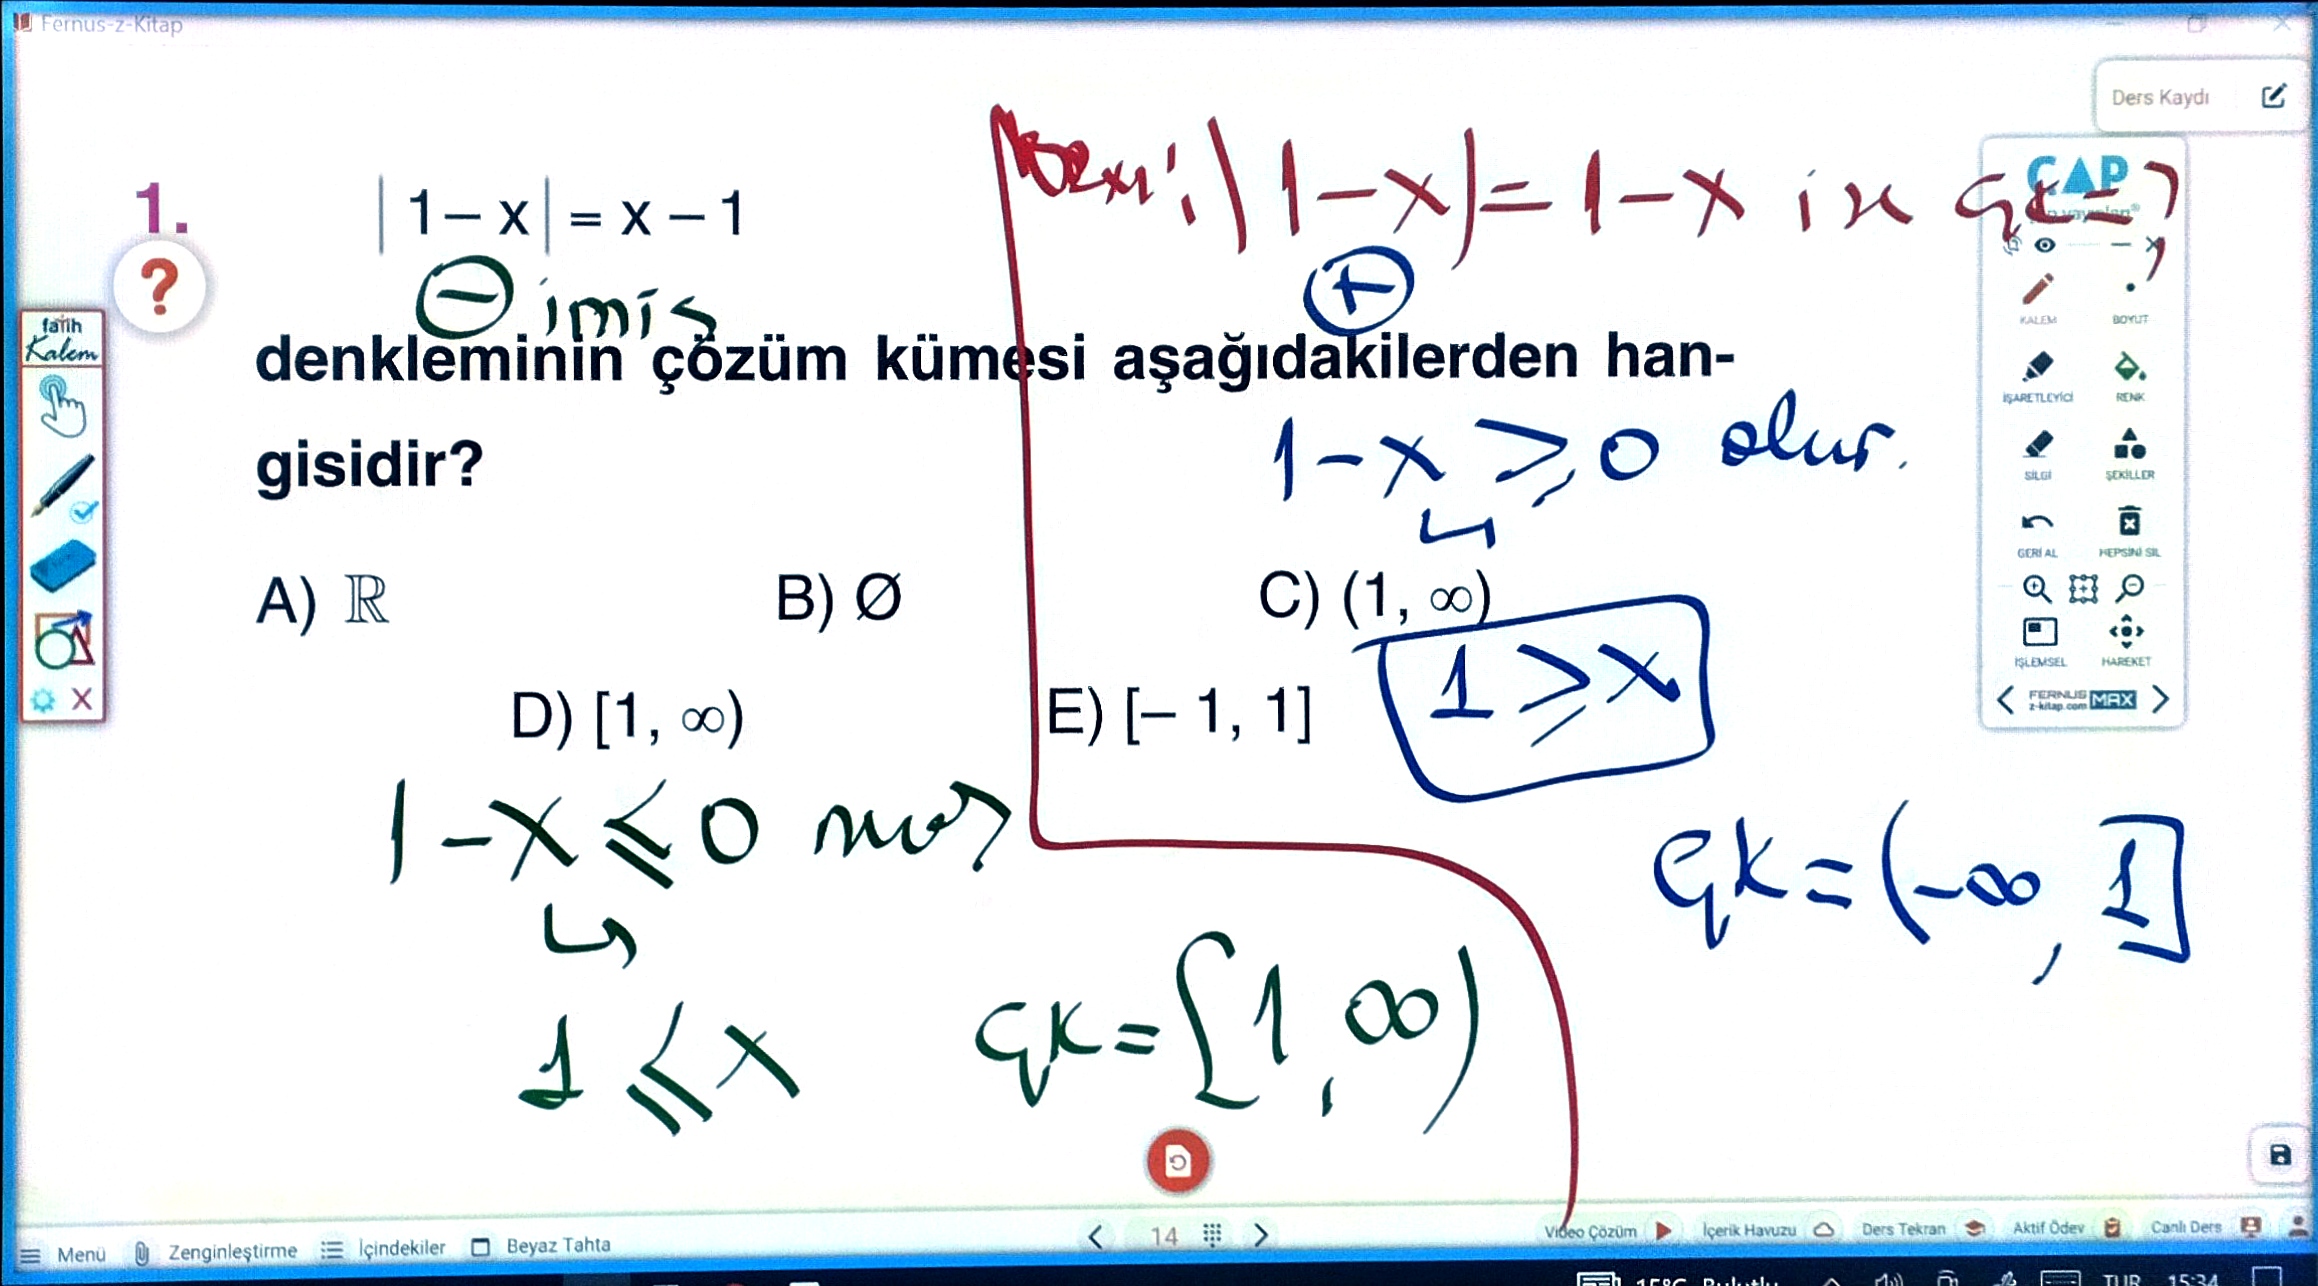 Fernus-z-Kitap
Ders Kaydı
1.
|1 – x| = x – 1
– imiş
denkleminin çözüm kümesi aşağıdakilerden han-
gisidir?
A) ℝ
B) Ø
C) (1, ∞)
D) [1, ∞)
E) [– 1, 1]
1-x ≤ 0
1 ≤ x
çk = [1, ∞)
|1-x| = 1-x
çk = ?
+
1-x ≥ 0 olur.
1 ≥ x
çk = (-∞, 1]
fatih
Kalem
ÇAP
KALEM
BOYUT
İŞARETLEYİCİ
RENK
SİLGİ
ŞEKİLLER
GERİ AL
HEPSİNİ SİL
İŞLEMSEL
HAREKET
FERNUS
z-kitap.com
MAX
Menü
Zenginleştirme
İçindekiler
Beyaz Tahta
14
Video Çözüm
İçerik Havuzu
Ders Tekrarı
Aktif Ödev
Canlı Ders
15°C Bulutlu
TUR
15:34